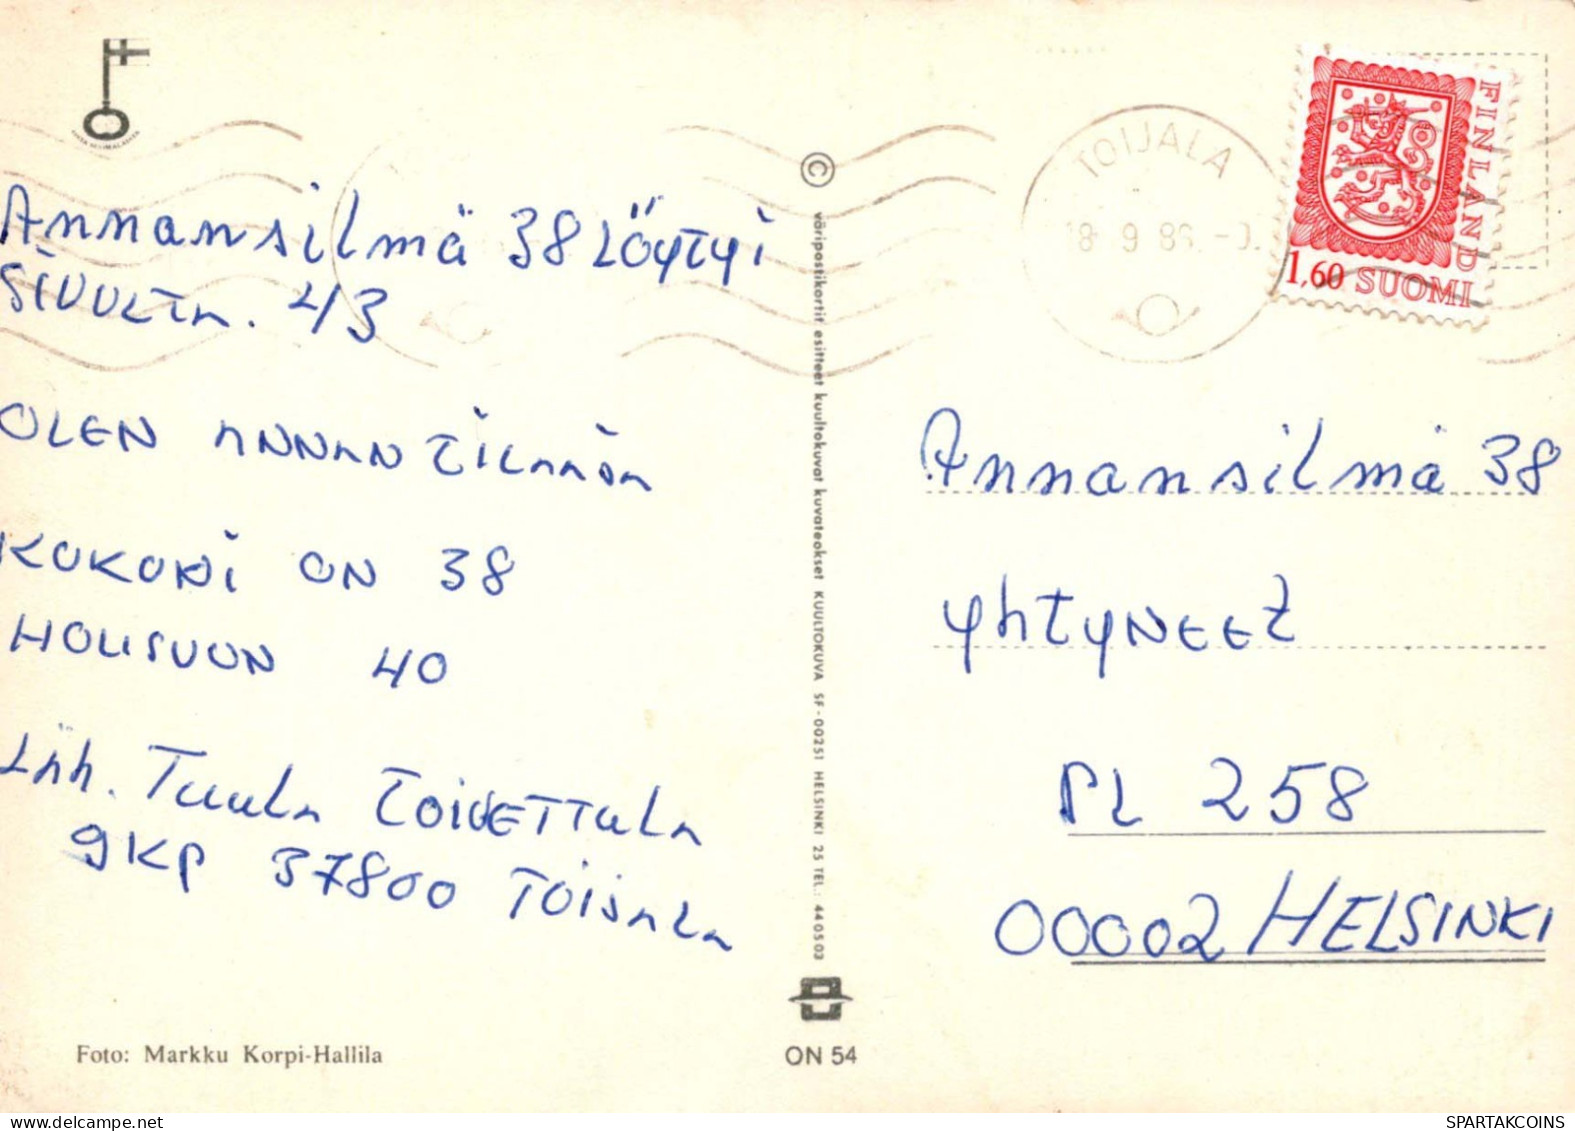 Annansilmä 38 Löytyi
sivulta. 43
OLEN ANNAN TILAAJA
KOKONI ON 38
HOUSUON 40
Läh. Tuula Toivettula
9KP 37800 TOIJALA
Foto: Markku Korpi-Hallila
©
väripostikortit esitteet kuultokuvat kuvateokset KUULTOKUVA SF-00251 HELSINKI 25 TEL.: 440503
ON 54
TOIJALA
18.9.86.-
FINLAND
1,60 SUOMI
Annansilmä 38
yhtyneet
PL 258
00002 HELSINKI
delcampe.net
SPARTAKCOINS